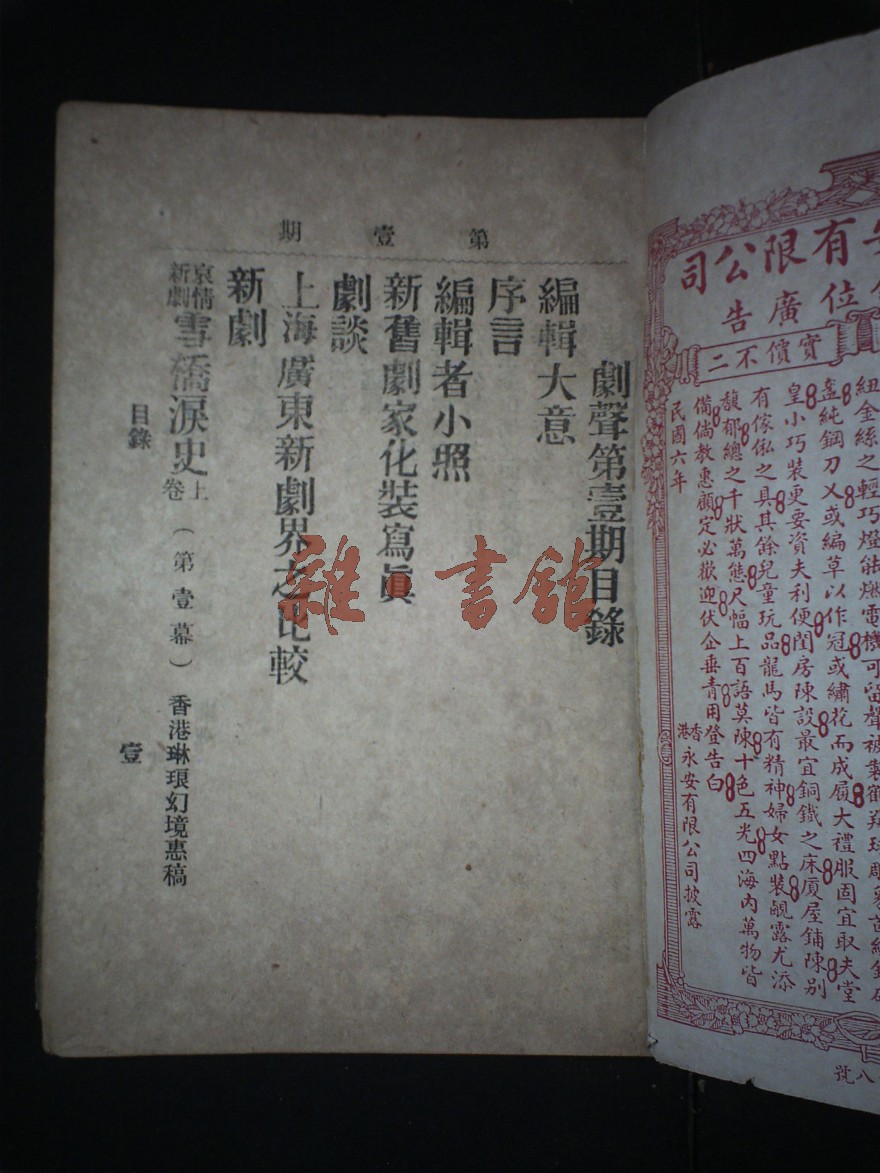 安有限公司
位廣告
實價不二
紐金絲之輕巧燈能燃電機可留聲被製
盏純鋼刀乂或編草以作冠或繡花而成屐大禮服固宜取夫堂
皇小巧裝更要資夫利便閨房陳設最宜銅鐵之床廈屋鋪陳別
有傢俬之具其餘兒童玩品龍馬皆有精神婦女點裝靚露尤添
馥郁總之千狀萬態尺幅上百語莫陳十色五光四海內萬物皆
備倘教惠顧定必歡迎伏企垂青用登告白
香港永安有限公司披露
民國六年
八號
第壹期
劇聲第壹期目錄
編輯大意
序言
編輯者小照
新舊劇家化裝寫眞
劇談
上海廣東新劇界之比較
新劇
哀情新劇雪橋淚史上卷(第壹幕)香港琳琅幻境惠稿
目錄
壹
雜·書館